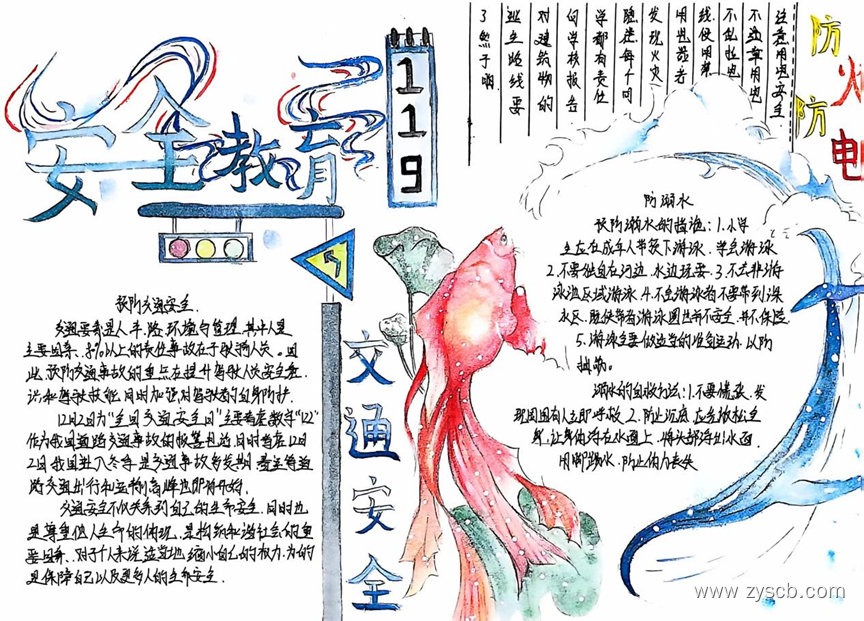 安全教育
119
防火
防电
注意用电安全
不违章用电
不乱拉电
线使用禁
用电器者
发现火灾
隐患每个同
学都有责任
向学校报告
对建筑物的
逃生路线要
了然于胸
预防交通安全
交通要素是人、车、路、环境与管理,其中人是
主要因素,80%以上的责任事故在于驾驶人员。因
此,预防交通事故的重点在提升驾驶人安全意
识和驾驶技能,同时加强对驾驶者的自身防护
12月2日为"全国交通安全日"主要考虑数字"122"
作为我国道路交通事故的报警电话,同时考虑12月
2日我国进入冬季,是交通事故多发期
路交通出行和运输高峰也即将开始。
交通安全不仅关系到自己的生命安全,同时也
是尊重他人生命的体现,是构筑和谐社会的重
要因素,对于个人来说适当地缩小自己的权力,为的
是保障自己以及更多人的生命安全。
交通安全
防溺水
预防溺水的措施:1.小学
生应在成年人带领下游泳,学会游泳
2.不要独自在河边、水边玩耍.3.不去非游
泳池区域游泳.4.不会游泳者不要带到深
水区,即使带着游泳圈也并不安全,并不保险.
5.游泳主要做适当的准备运动,以防
抽筋。
溺水的自救方法:1.不要慌张,发
现周围有人立即呼救 2.防止沉底,应当放松全
身,让身体浮在水面上,将头部浮出水面,
用脚踢水,防止体力丧失
www.zyscb.com